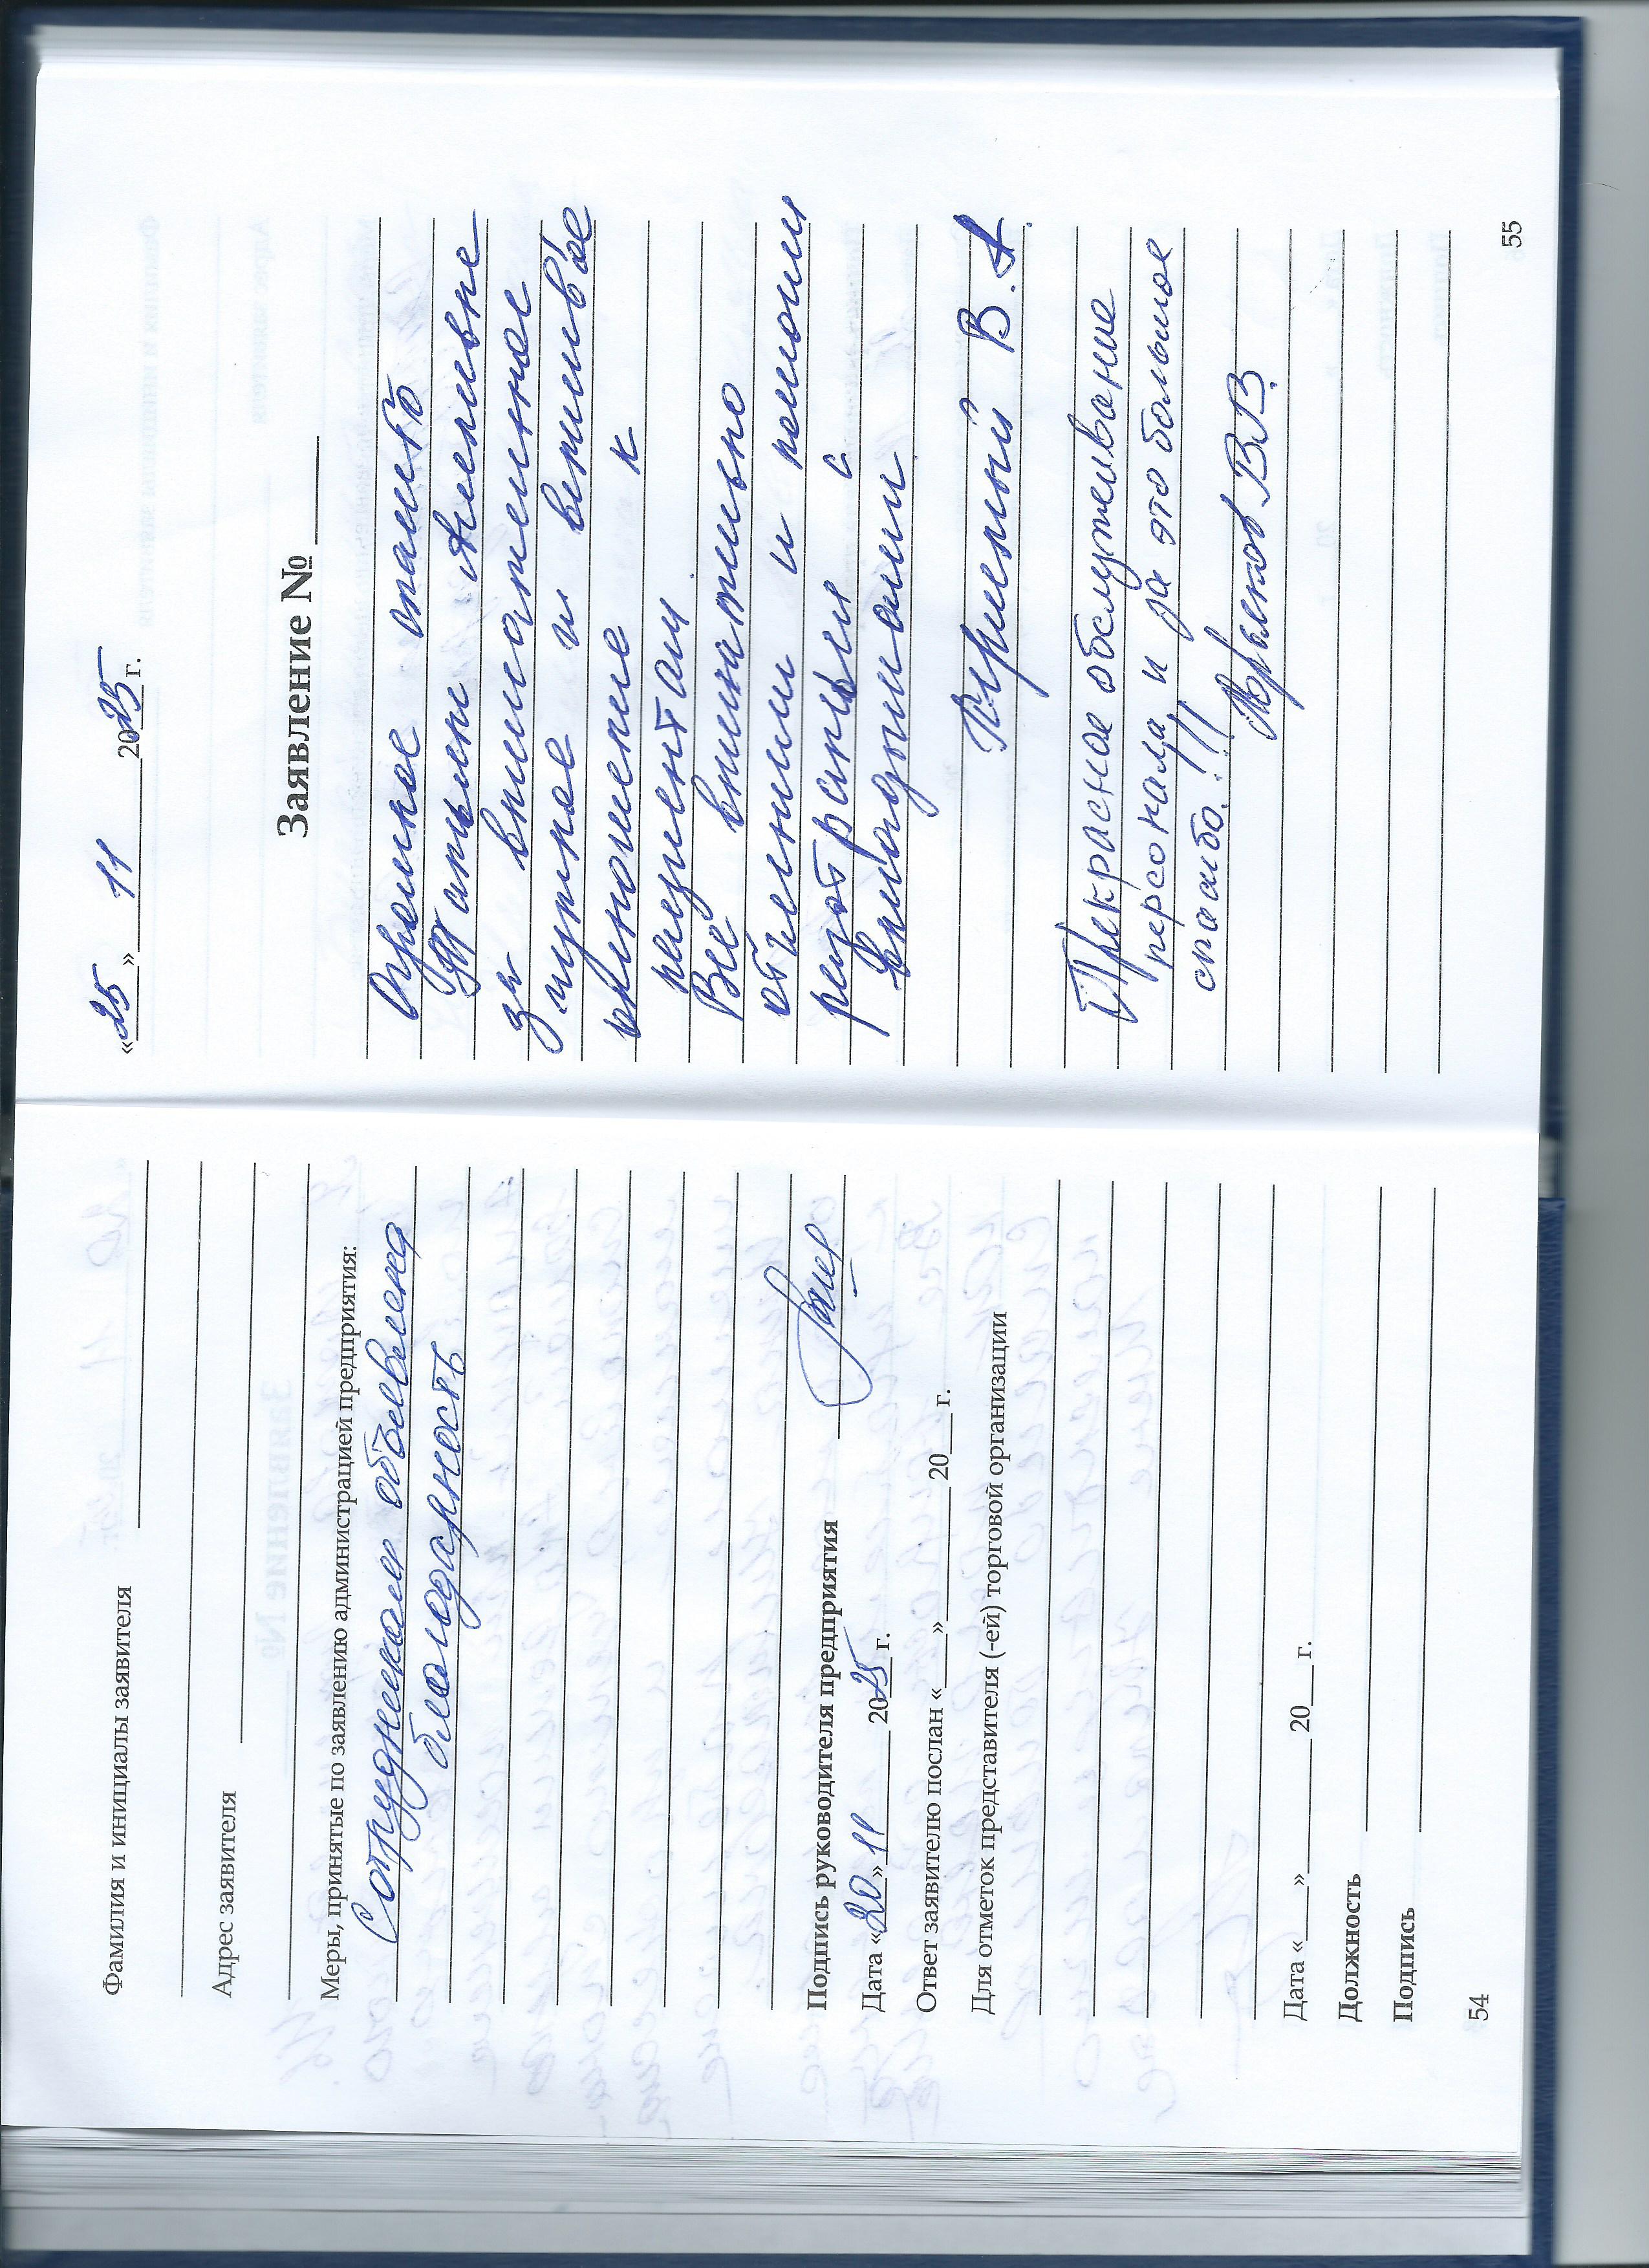 Фамилия и инициалы заявителя
Адрес заявителя
Меры, принятые по заявлению администрацией предприятия:
Сотрудникам объевлена
благодарность
Подпись руководителя предприятия
Дата «20» 11 2025 г.
Ответ заявителю послан «___»________ 20___ г.
Для отметок представителя (-ей) торговой организации
Дата «___»________ 20___ г.
Должность
Подпись
54
«25» 11 2025 г.
Заявление № ____
Огромное спасибо
за внимательное
чуткое и
отношение к
пациентам
Все внимательно
В. А.
Прекрасное обслуживание
персонала и за это большое
спасибо!!!
В.В.
55